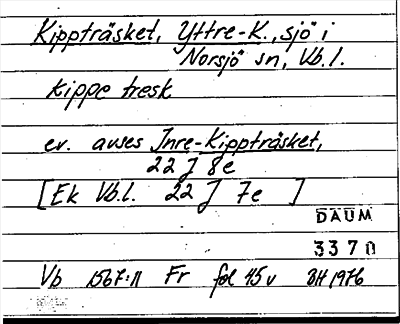 Kippträsket, Yttre-K., sjö i
Norsjö sn, Vb.l.
kippe tresk
ev. avses Inre-Kippträsket,
22 J 8e
[Ek Vb.l. 22 J 7e ]
DAUM
3370
Vb 1567:11 Fr fol 45v BH 1976